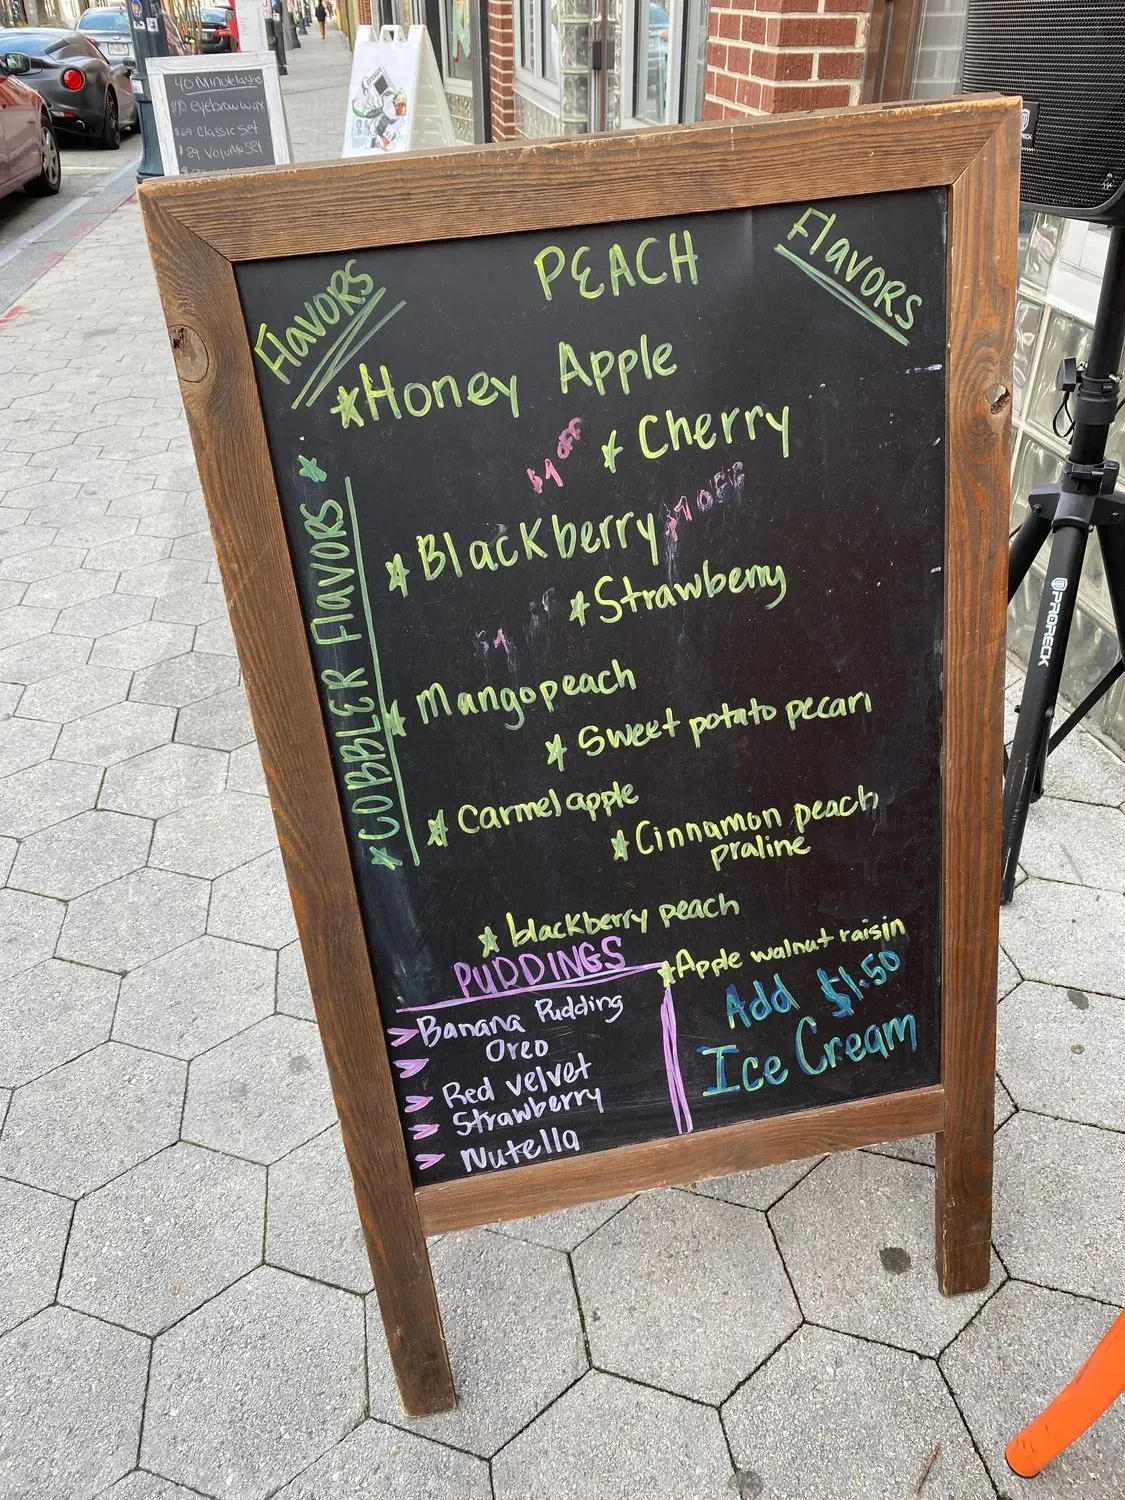 40 Minute lashes
$10 eyebrow wax
$69 Classic set
$89 Volume set
Flavors
PEACH
Flavors
Honey Apple
Cherry
$1 OFF
Blackberry
$1 OFF
Strawberry
$1
Mangopeach
Sweet potato pecan
Carmel apple
Cinnamon peach
praline
blackberry peach
Apple walnut raisin
COBBLER Flavors
PUDDINGS
Banana Pudding
Oreo
Red velvet
Strawberry
Nutella
Add $1.50
Ice Cream
PRORECK